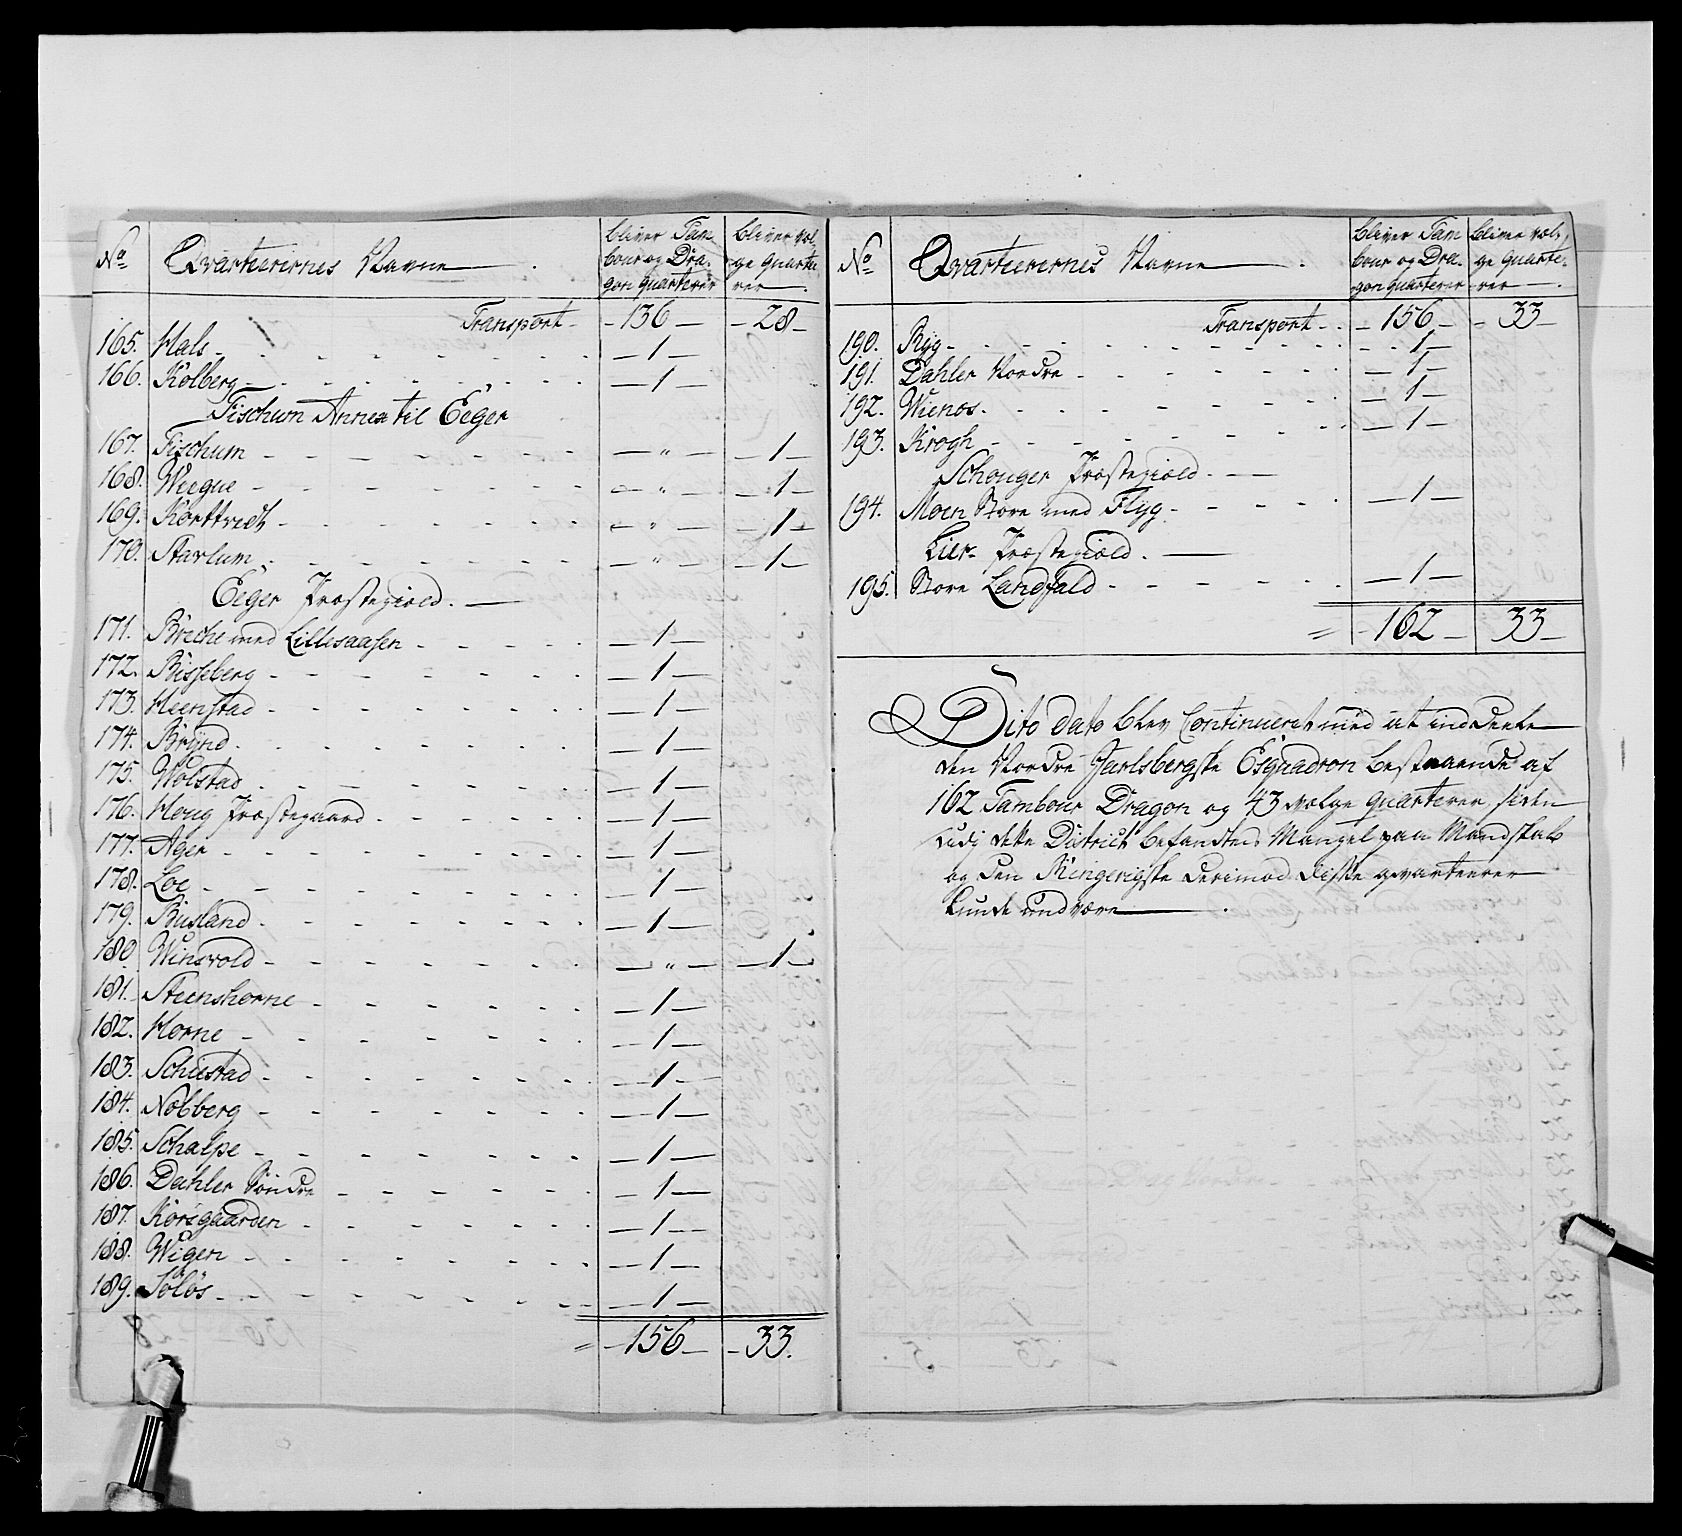 No Qvarteerernes Navne bliver Tam- bliver vel-
bour og Dra- ge Quarte-
gon quarterer rer
Transport 136 28
165. Hals 1
166. Kolberg 1
Fischum Annex til Eeger
167. Fischum " 1
168. Wegue " 1
169. Korttvedt " 1
170. Starlum " 1
Eeger Præstegield.
171. Breche med Lillesaasen 1
172. Bisseberg 1
173. Heenstad 1
174. Brynd 1
175. Wolstad 1
176. Houg Præstegaard 1
177. Ager 1
178. Loe 1
179. Busland 1
180. Winsvold " 1
181. Steenshorne 1
182. Horne 1
183. Schiestad 1
184. Nobberg 1
185. Schalpe 1
186. Dahler Søndre 1
187. Korsgaarden 1
188. Wigen 1
189. Soløs 1
= 156 33.
No Qvarteerernes Navne bliver Tam bliver vel-
bour og Dra- ge Quarte-
gon quarterer rer
Transport 156 33
190. Ryg 1
191. Dahler Nordre 1
192. Wienos 1
193. Krogh 1
Schouger Præstegield
194. Moen Store med Flyg 1
Lier Præstegield.
195. Store Landfald 1
= 162 33
Dito dato blev Continueret med at inddeele
den Nordre Jarlsbergske Esquadron bestaaende af
162 Tambour Dragon og 43 velge quarterer, siden
udj dette District befandtes Mangel paa Mandskab
og den Ringerigske derimod disse qvarteerer
kunde undvære